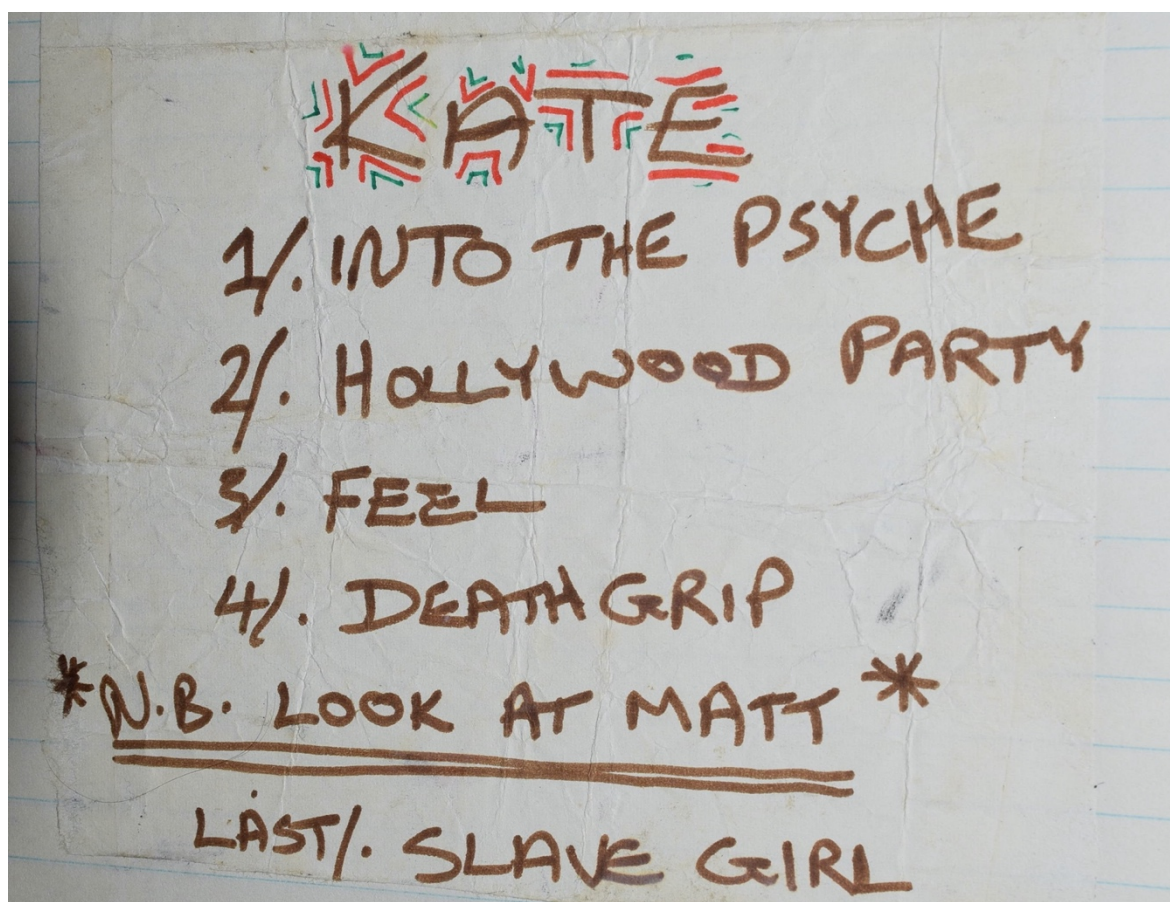 KATE
1/. INTO THE PSYCHE
2/. HOLLYWOOD PARTY
3/. FEEL
4/. DEATH GRIP
*N.B. LOOK AT MATT *
LAST/. SLAVE GIRL